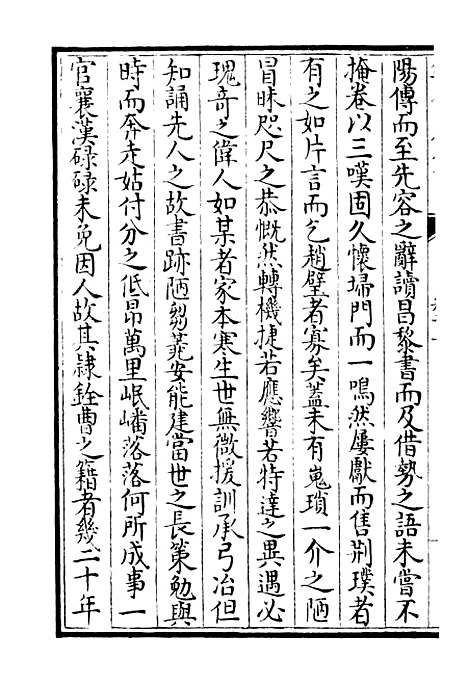 陽傳而至先容之辭讀昌黎書而及借勢之語未嘗不
掩卷以三嘆固久懷埽門而一鳴然屢獻而售荆璞者
有之如片言而乞趙璧者寡矣蓋未有嵬瑣一介之陋
冒昧咫尺之恭慨然轉機捷若應響若特達之異遇必
瑰奇之偉人如某者家本寒生世無微援訓承弓冶但
知誦先人之故書跡陋芻蕘安能建當世之長策勉與
時而奔走姑付分之低昂萬里岷嶓落落何所成事一
官襄漢碌碌未免因人故其隷銓曹之籍者幾二十年